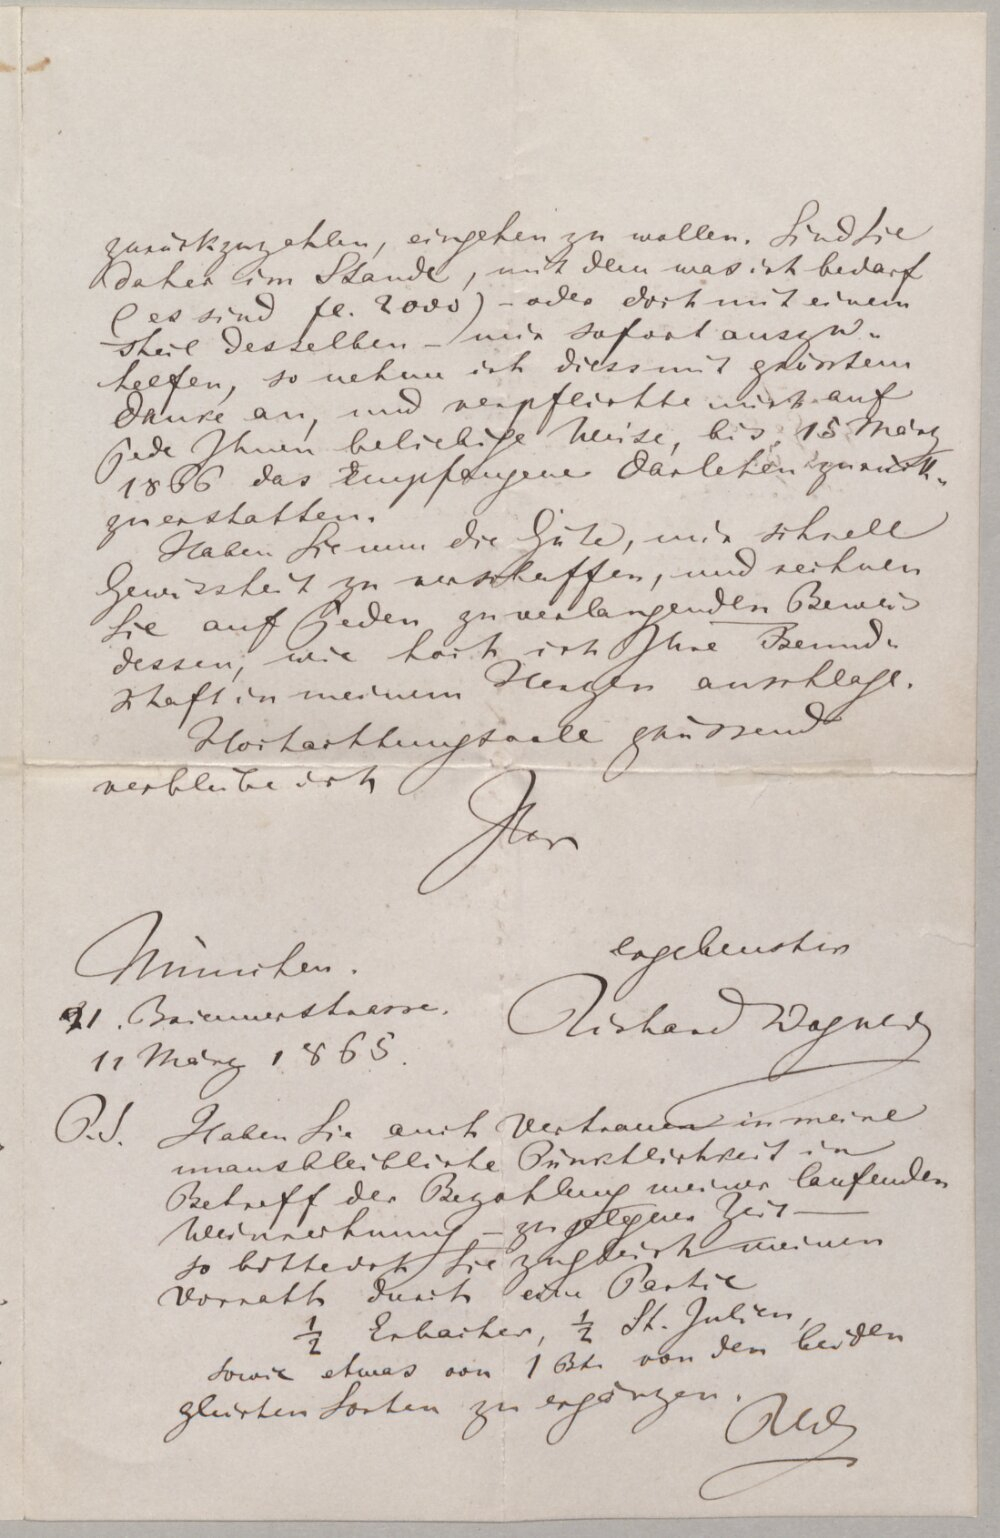 zurückzuzahlen, eingehen zu wollen. Sind Sie
daher im Stande, mit dem was ich bedarf
(es sind fl. 2000) – oder doch mit einem
Theil desselben – mir sofort auszu-
helfen, so nehme ich diess mit grösstem
Danke an, und verpflichte mich auf
jede Ihnen beliebige Weise, bis 15 März
1866 das empfangene Darlehen zurück-
zuerstatten.
Haben Sie nun die Güte, mir schnell
Gewissheit zu verschaffen, und rechnen
Sie auf jeden zu verlangenden Beweis
dessen, wie hoch ich Ihre Freund-
schaft in meinem Herzen anschlage.
Hochachtungsvoll grüssend
verbleibe ich
Ihr
München.
21. Briennerstrasse.
11 März 1865.
ergebenster
Richard Wagner
P.S. Haben Sie auch Vertrauen in meine
unausbleibliche Pünktlichkeit in
Betreff der Bezahlung meiner laufenden
Weinrechnung – zu gelegener Zeit –
so bitte ich Sie zugleich meinen
Vorrath durch eine Partie
1/2 Erbacher, 1/2 St. Julien,
sowie etwas von 1 Bt. von den beiden
gleichen Sorten zu ergänzen.
RW